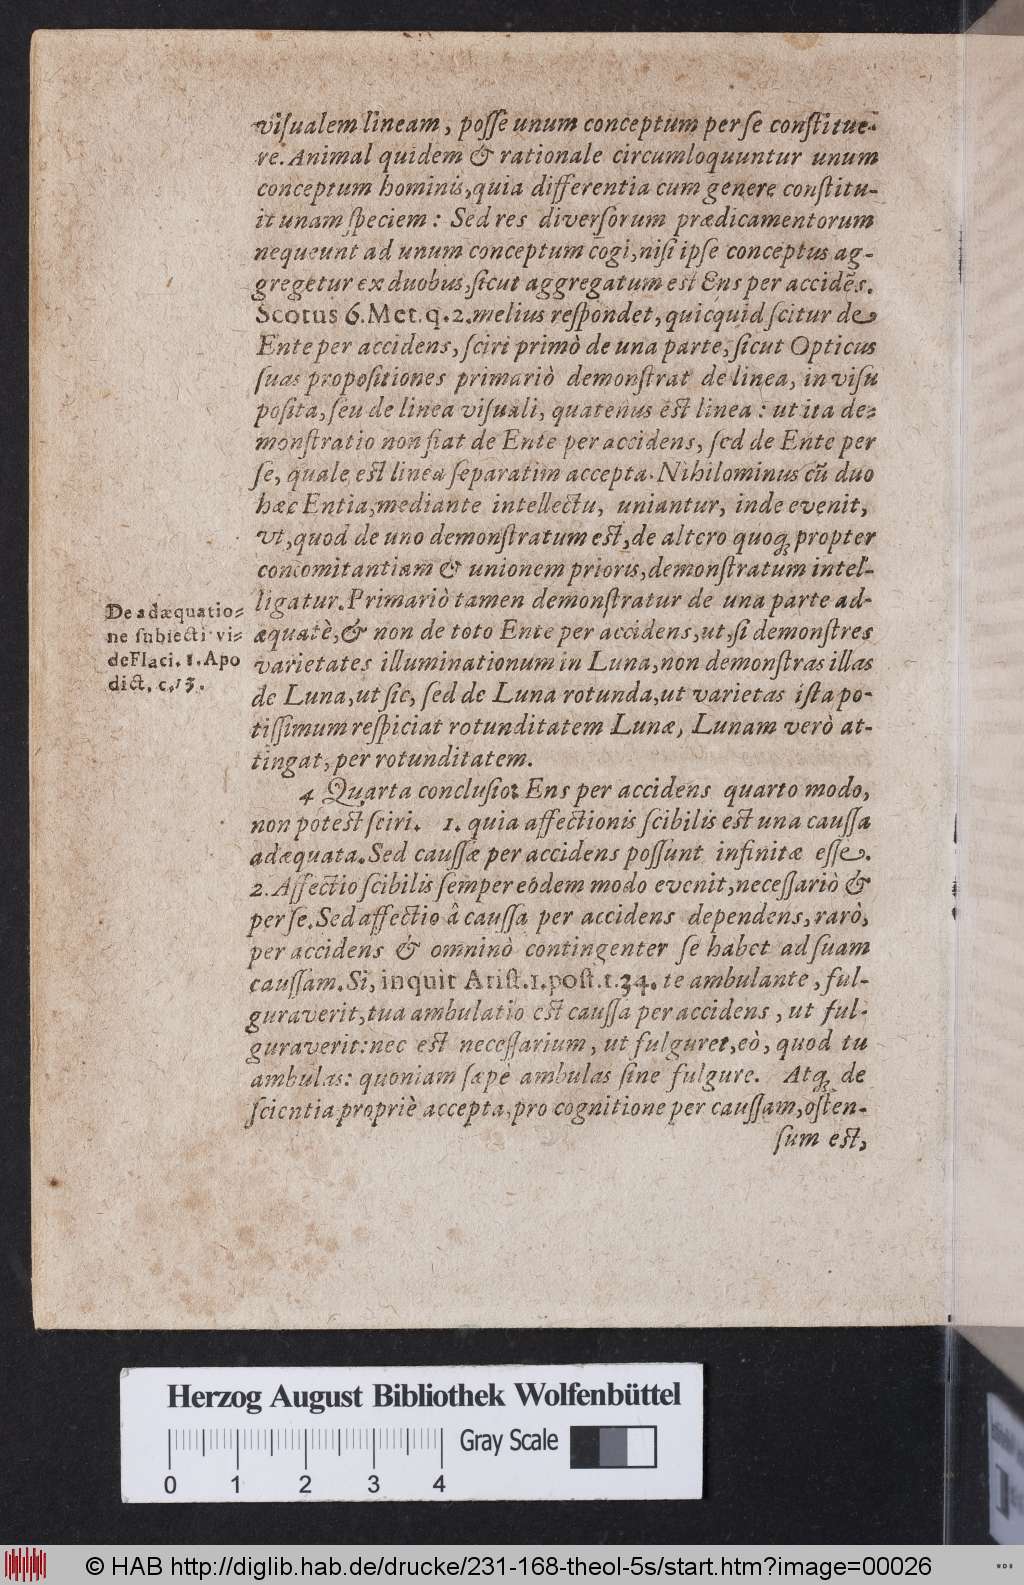 viſualem lineam, poſſe unum conceptum per ſe conſtitue-
re. Animal quidem & rationale circumloquuntur unum
conceptum hominis, quia differentia cum genere conſtitu-
it unam ſpeciem: Sed res diverſorum prædicamentorum
nequeunt ad unum conceptum cogi, niſi ipſe conceptus ag-
gregetur ex duobus, ſicut aggregatum eſt Ens per accidẽs.
Scotus 6. Met. q. 2. melius reſpondet, quicquid ſcitur de
Ente per accidens, ſciri primò de una parte, ſicut Opticus
ſuas propoſitiones primariò demonſtrat de linea, in viſu
poſita, ſeu de linea viſuali, quatenus eſt linea: ut ita de-
monſtratio non fiat de Ente per accidens, ſed de Ente per
ſe, quale eſt linea ſeparatim accepta. Nihilominus cũ duo
hæc Entia, mediante intellectu, uniantur, inde evenit,
vt, quod de uno demonſtratum eſt, de altero quoq; propter
concomitantiam & unionem prioris, demonſtratum intel-
ligatur. Primariò tamen demonſtratur de una parte ad-
æquatè, & non de toto Ente per accidens, ut, ſi demonſtres
varietates illuminationum in Luna, non demonſtras illas
de Luna, ut ſic, ſed de Luna rotunda, ut varietas iſta po-
tiſſimum reſpiciat rotunditatem Lunæ, Lunam verò at-
tingat, per rotunditatem.
De adæquatio-
ne ſubiecti vi-
de Flaci. 1. Apo
dict. c. 13.
4 Quarta concluſio: Ens per accidens quarto modo,
non poteſt ſciri. 1. quia affectionis ſcibilis eſt una cauſſa
adæquata. Sed cauſſæ per accidens poſſunt infinitæ eſſe.
2. Affectio ſcibilis ſemper eodem modo evenit, neceſſariò &
per ſe. Sed affectio â cauſſa per accidens dependens, rarò,
per accidens & omninò contingenter ſe habet ad ſuam
cauſſam. Si, inquit Ariſt. 1. poſt. t. 34. te ambulante, ful-
guraverit, tua ambulatio eſt cauſſa per accidens, ut ful-
guraverit: nec eſt neceſſarium, ut fulguret, eò, quod tu
ambulas: quoniam ſæpè ambulas ſine fulgure. Atq; de
ſcientia propriè accepta, pro cognitione per cauſſam, oſten-
ſum eſt,
Herzog August Bibliothek Wolfenbüttel
Gray Scale
0 1 2 3 4
© HAB http://diglib.hab.de/drucke/231-168-theol-5s/start.htm?image=00026